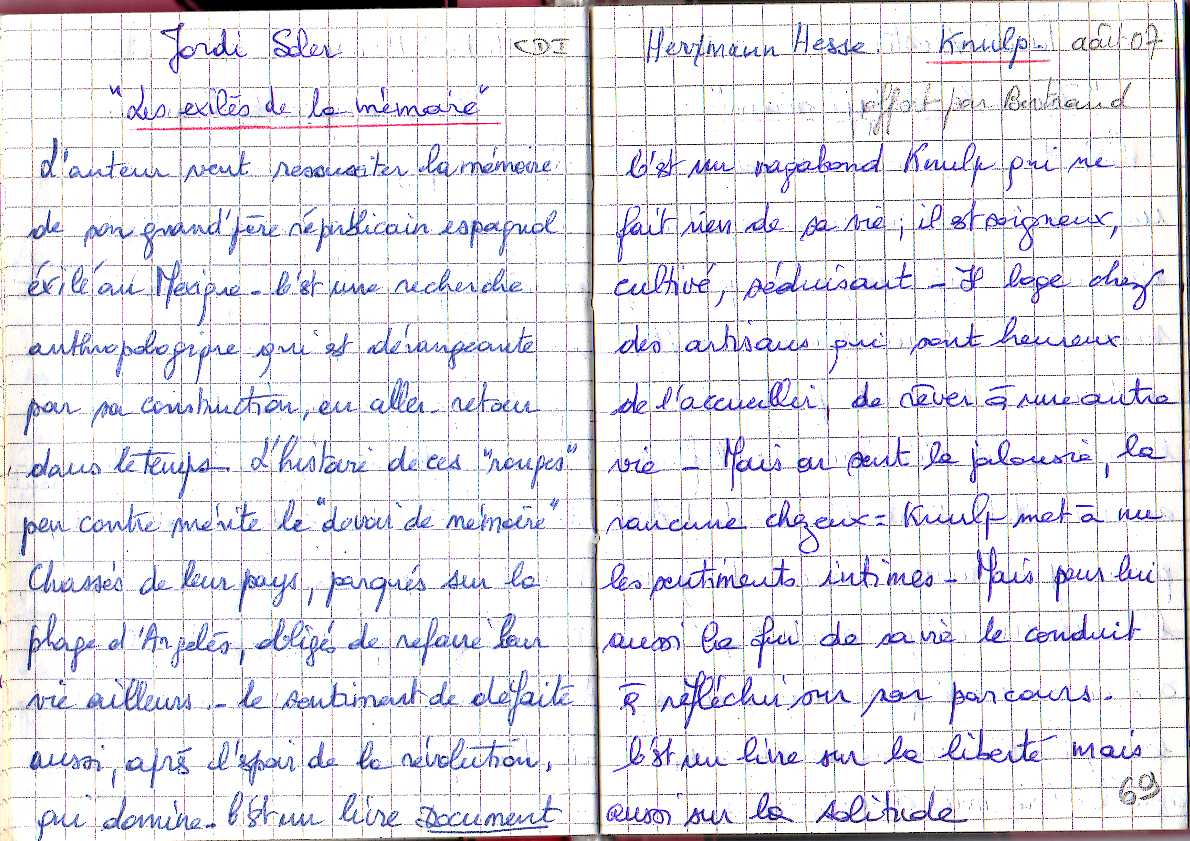 Jordi Soler CDI
"Les exilés de la mémoire"
L'auteur veut ressusciter la mémoire
de son grand'père républicain espagnol
éxilé au Mexique - C'est une recherche
anthropologique qui est dérangeante
par sa construction, en aller-retour
dans le temps - L'histoire de ces "rouges"
peu contre mérite le "devoir de mémoire"
Chassés de leur pays, parqués sur la
plage d'Argelès, obligés de refaire leur
vie ailleurs - le sentiment de défaite
aussi, après l'espoir de la révolution,
qui domine - C'est un livre Document
Herzmann Hesse Knulp - août 07
offert par Bertrand
C'est un vagabond Knulp qui ne
fait rien de sa vie ; il est soigneux,
cultivé, séduisant - Il loge chez
des artisans qui sont heureux
de l'accueillir, de rêver à une autre
vie - Mais on sent la jalousie, la
rancune chez eux = Knulp met à nu
les sentiments intimes - Mais pour lui
aussi la fin de sa vie le conduit
à réfléchir sur son parcours.
C'est un livre sur la liberté mais
aussi sur la solitude
69